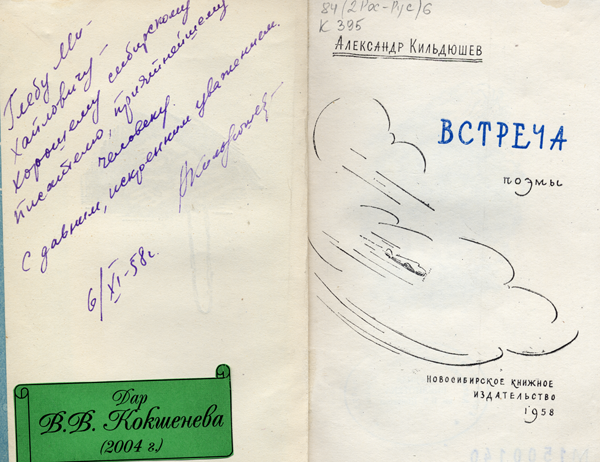 Глебу Ми-
хайловичу —
хорошему сибирскому
писателю, приятнейшему
человеку.
С давним, искренним уважением.
АКильдюшев —
6/XI-58г.
Дар
В.В. Кокшенева
(2004 г.)
84(2Рос-Рус)6
К 395
Александр Кильдюшев
ВСТРЕЧА
поэмы
НОВОСИБИРСКОЕ КНИЖНОЕ
ИЗДАТЕЛЬСТВО
1958